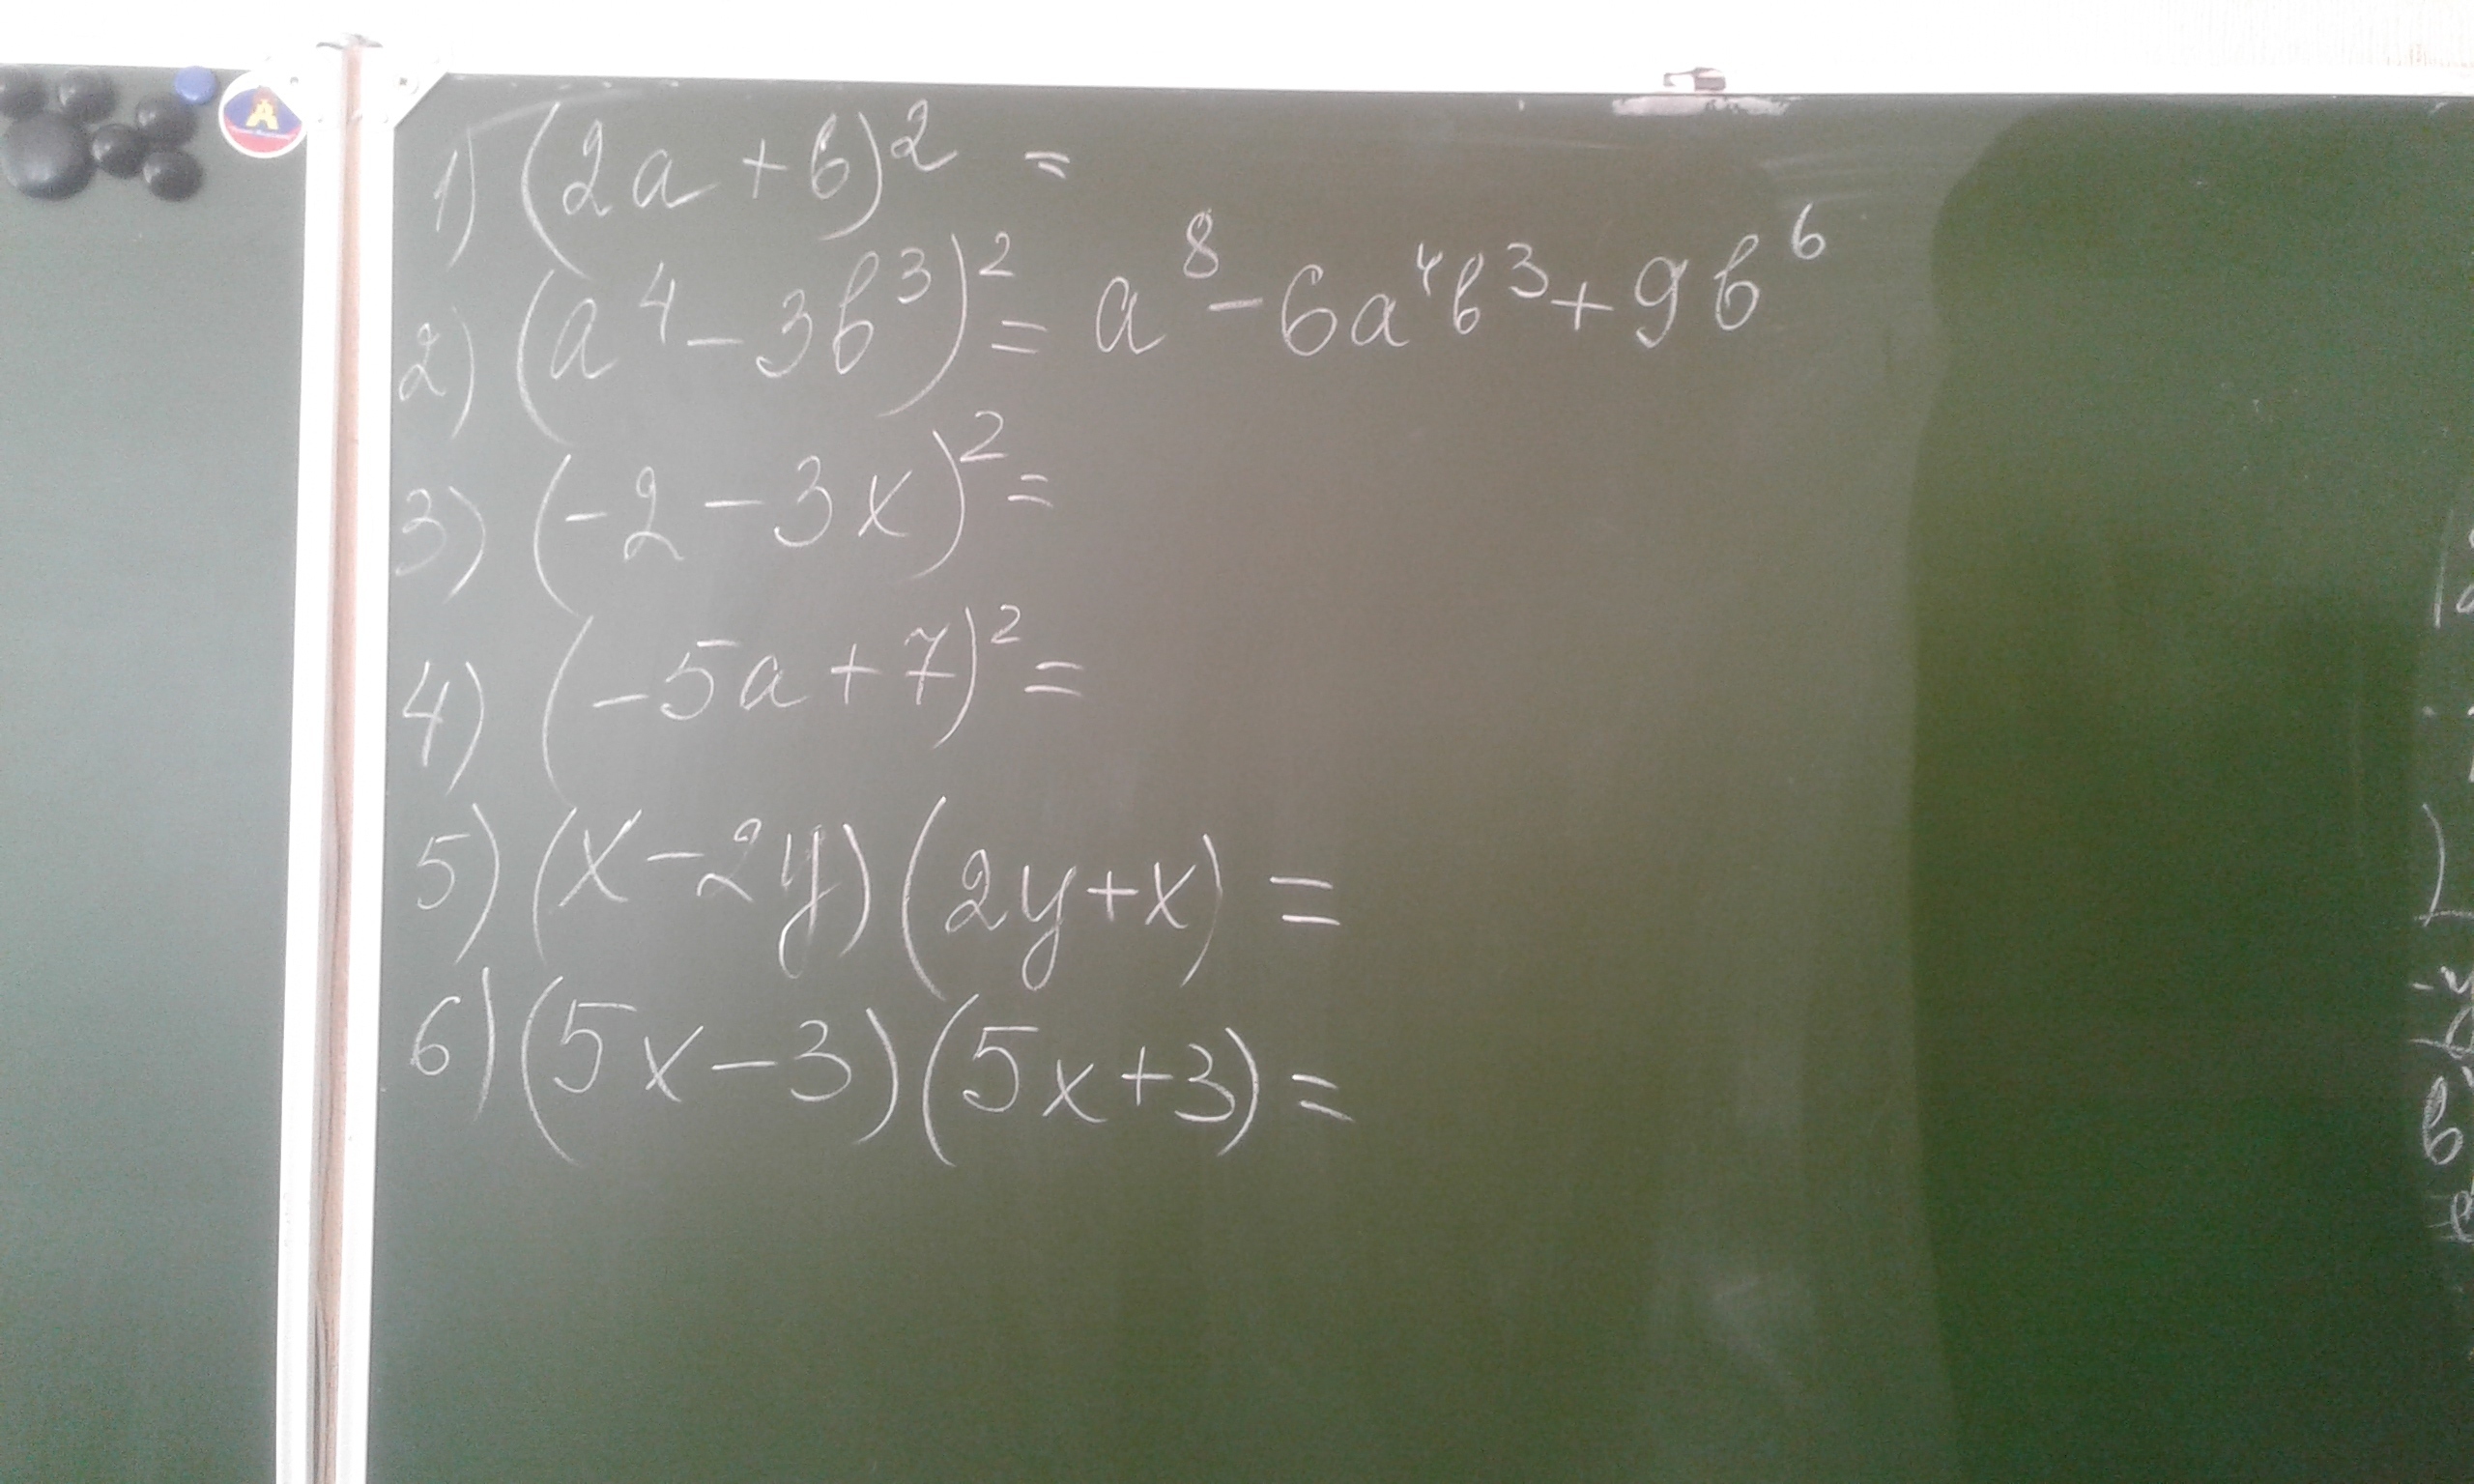 1) (2a + b)² =
2) (a⁴ - 3b³)² = a⁸ - 6a⁴b³ + 9b⁶
3) (-2 - 3x)² =
4) (-5a + 7)² =
5) (x - 2y)(2y + x) =
6) (5x - 3)(5x + 3) =